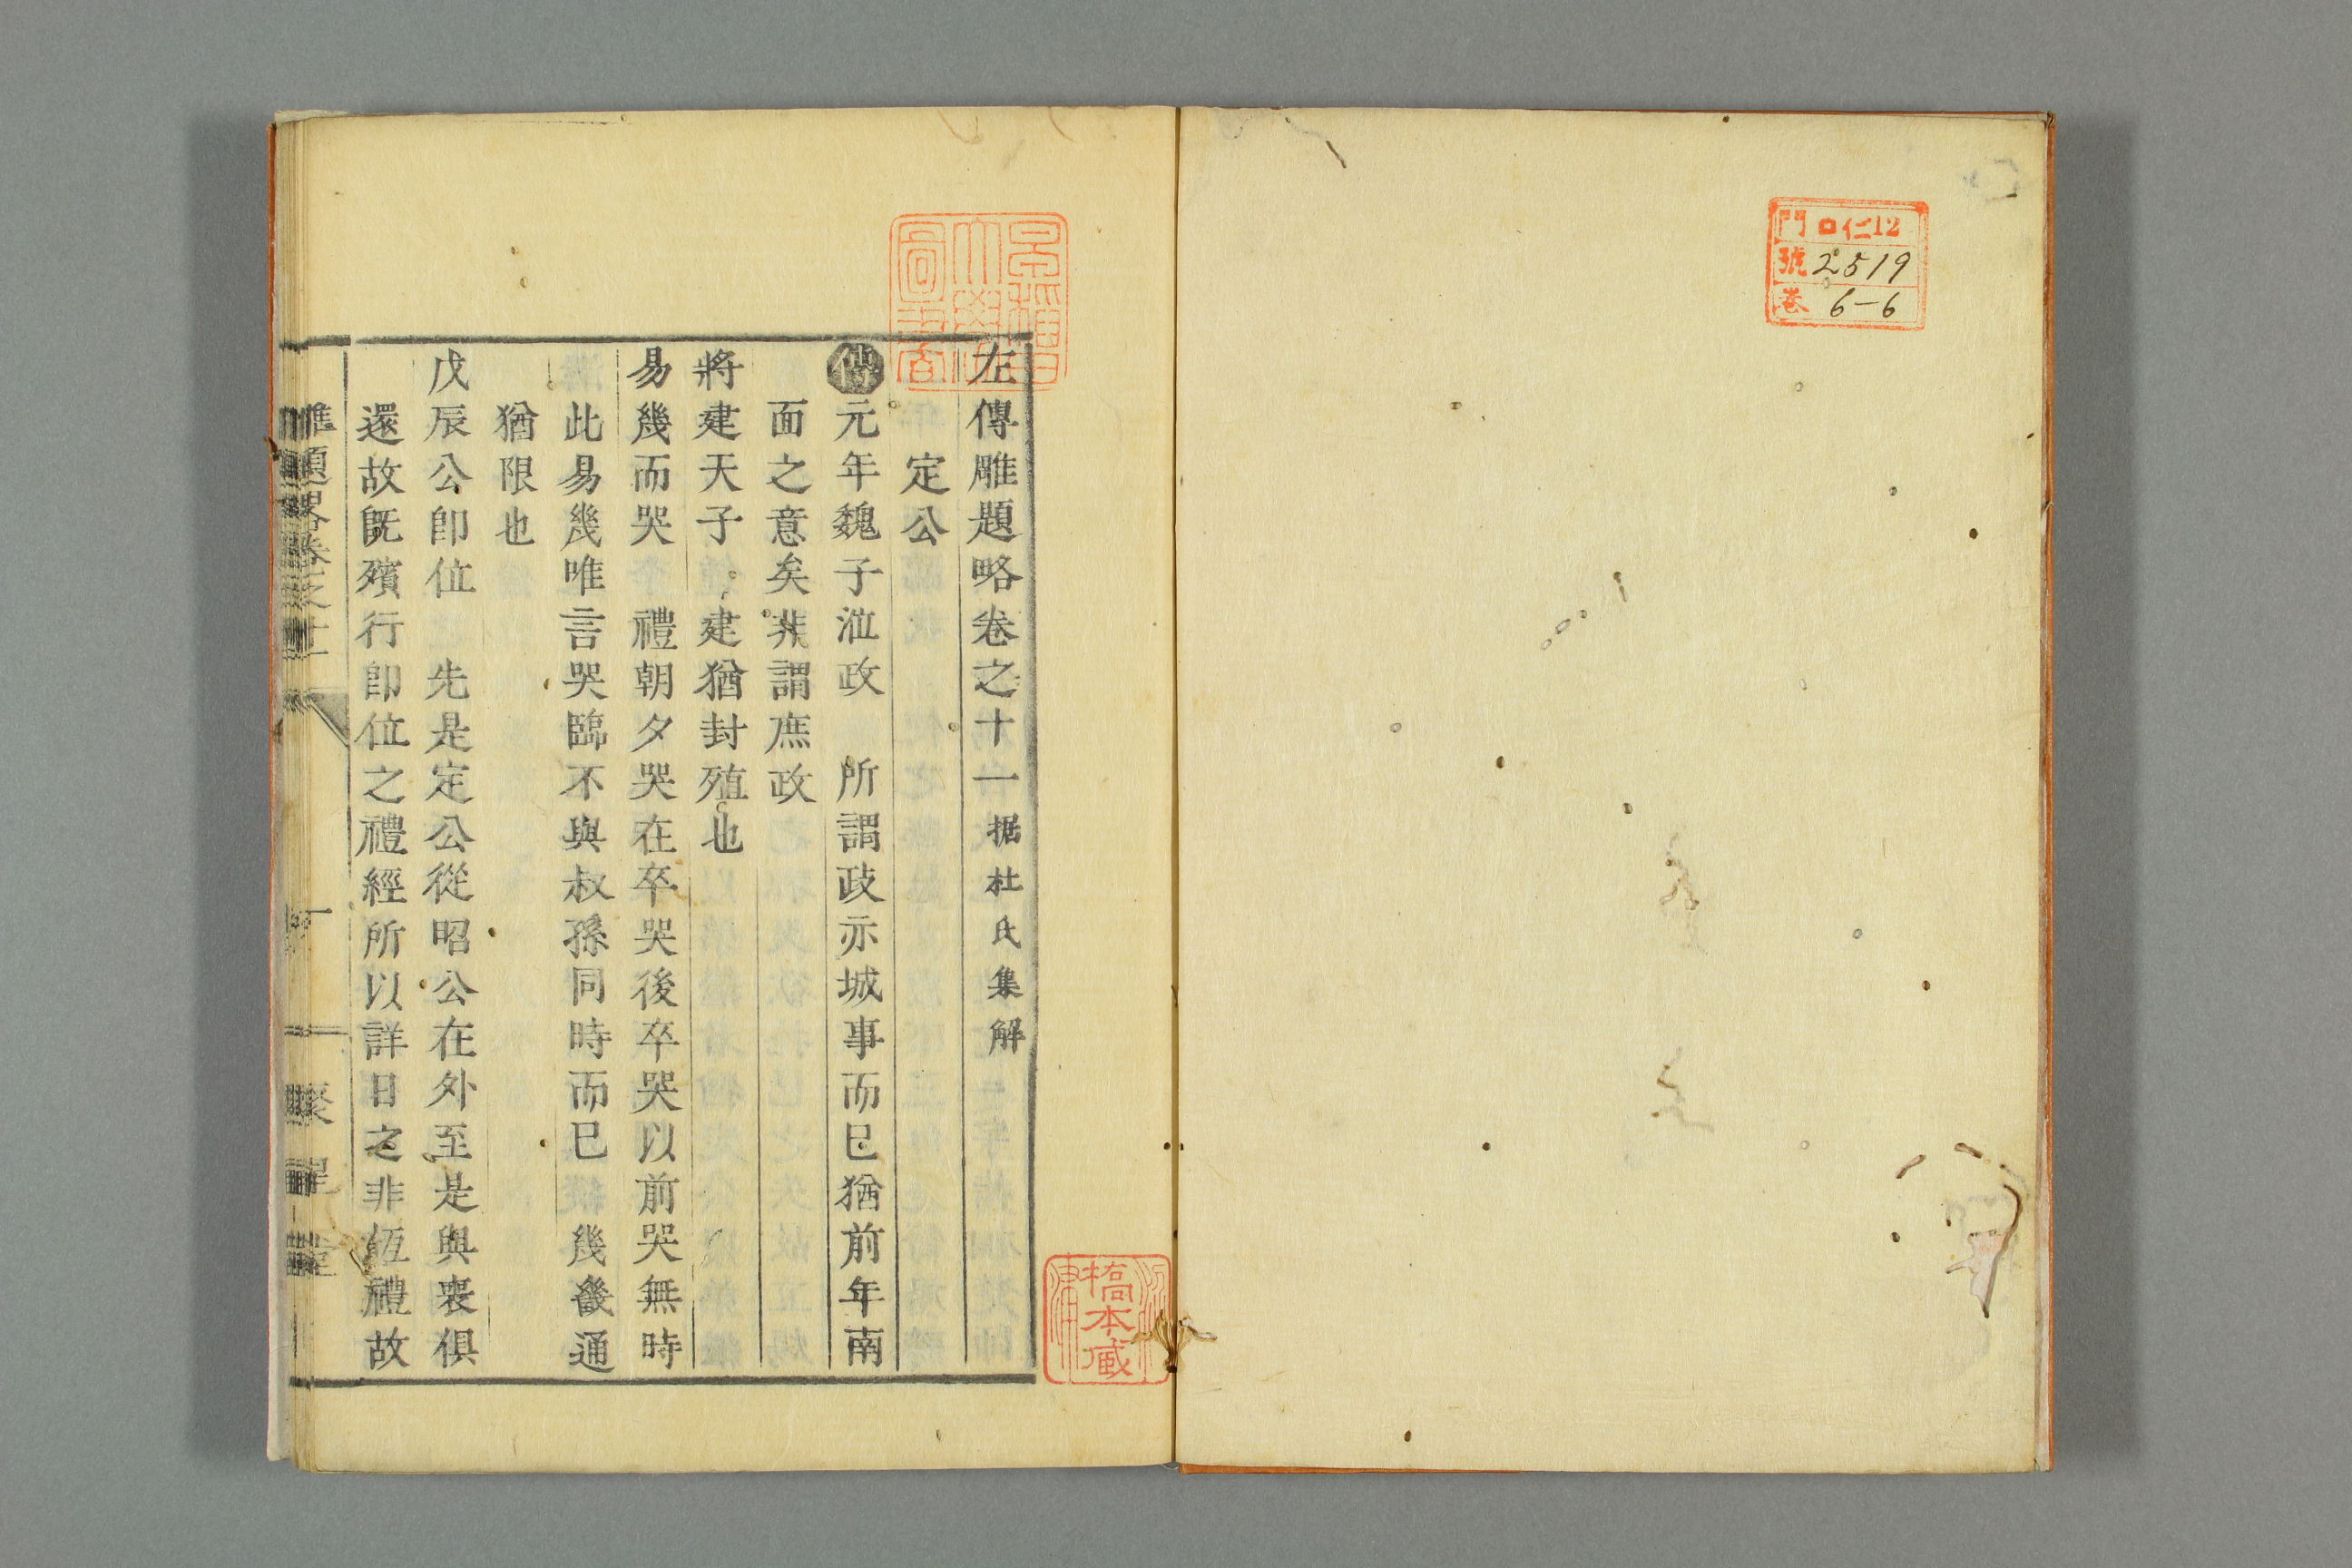 門 ロ仁12
號 2519
巻 6-6
左傳雕題略卷之十一 据杜氏集解
定公
傳元年魏子涖政 所謂政亦城事而已猶前年南
面之意矣非謂庶政
將建天子 建猶封殖也
易幾而哭 禮朝夕哭在卒哭後卒哭以前哭無時
此易幾唯言哭臨不與叔孫同時而已 幾畿通
猶限也
戊辰公卽位 先是定公從昭公在外至是與喪俱
還故旣殯行卽位之禮經所以詳日之非恆禮故
橋本藏